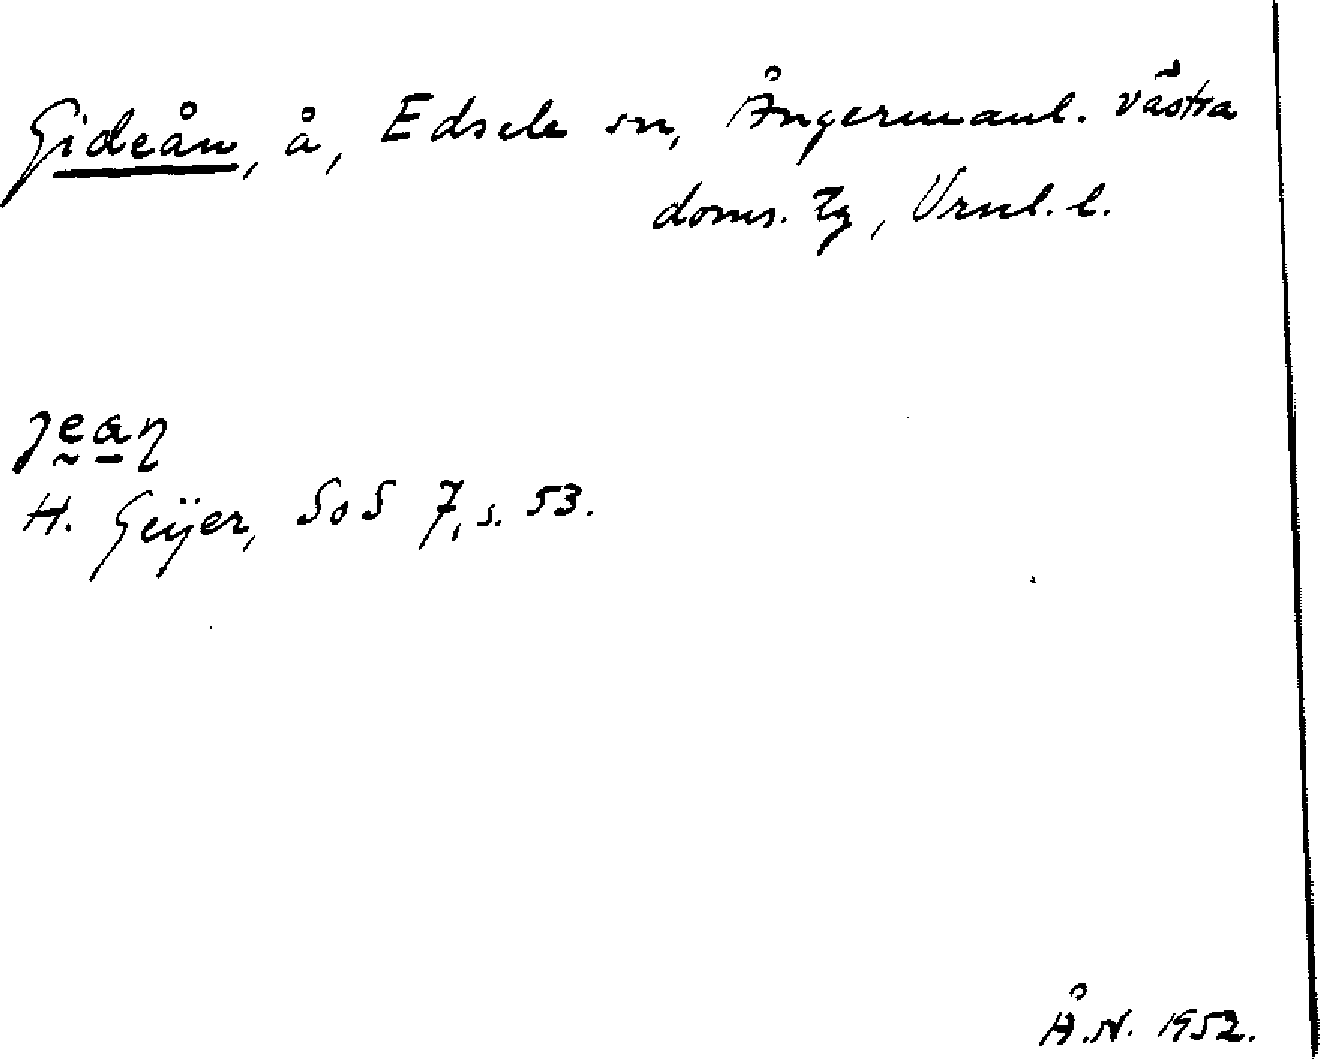 Gideån, å, Edsele sn, Ångermanl. västra
doms. tg, Vrnl. l.
H. Geijer, SoS 7, s. 53.
Å.N. 1952.